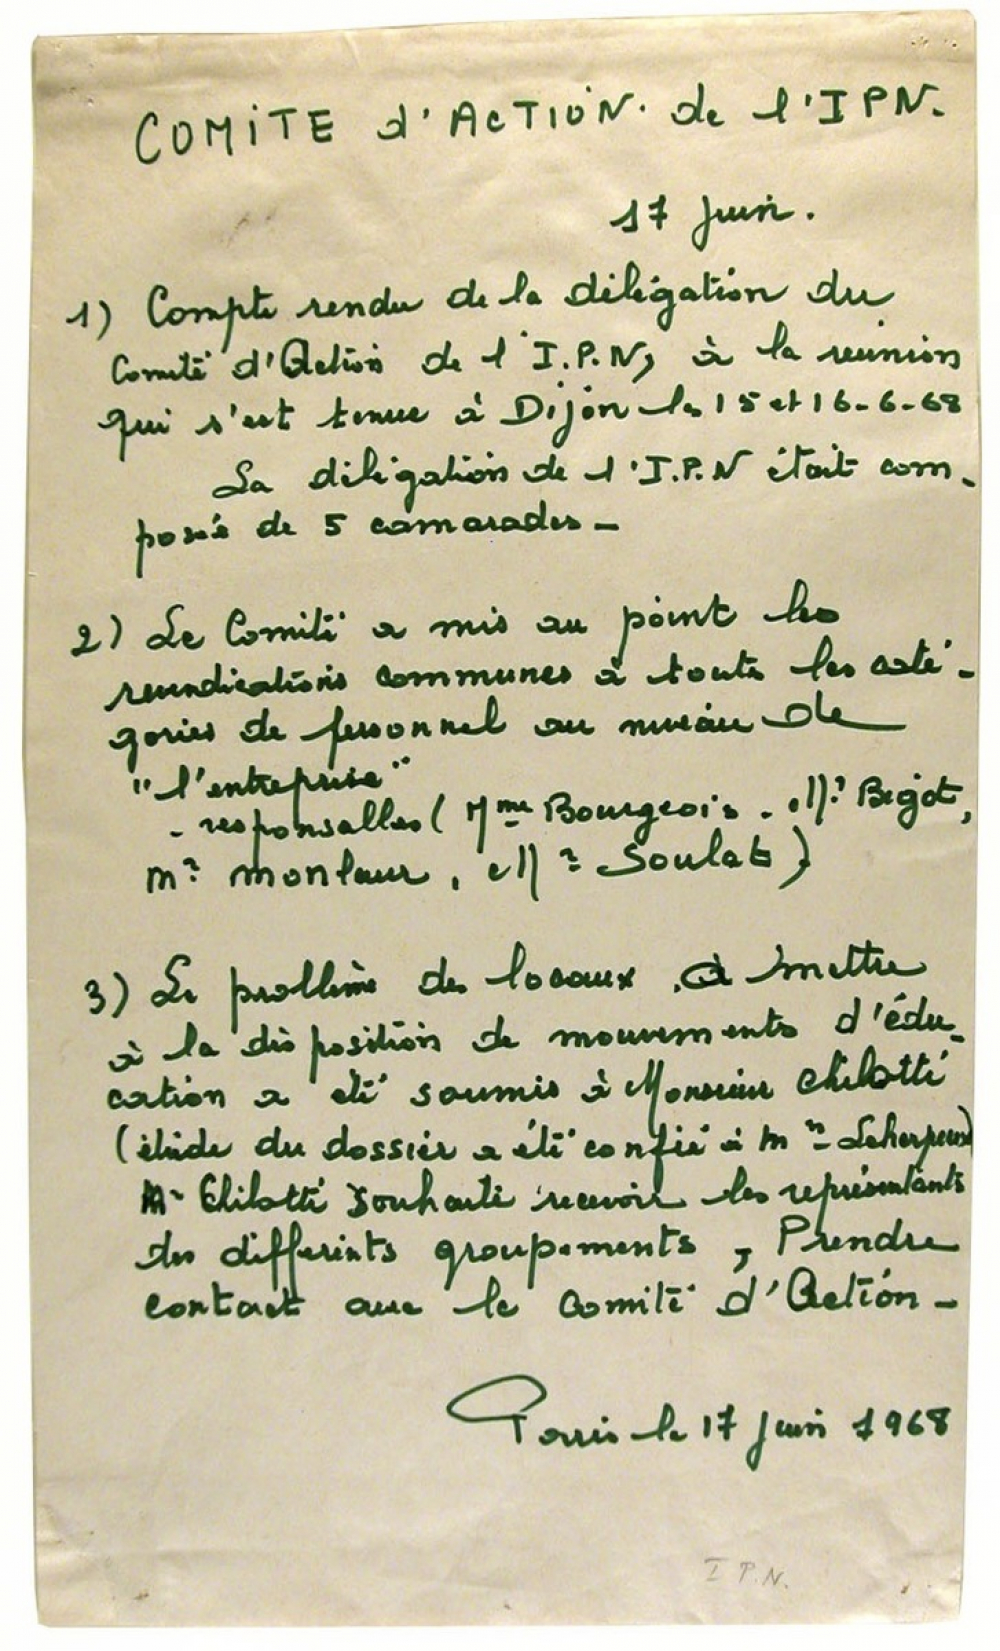 COMITE d'ACTION de l'IPN.
17 juin.
1) Compte rendu de la délégation du
Comité d'Action de l'I.P.N, à la réunion
qui s'est tenue à Dijon les 15 et 16-6-68
La délégation de l'I.P.N était com-
posée de 5 camarades -
2) Le Comité a mis au point les
revendications communes à toutes les caté-
gories de personnel au niveau de
"l'entreprise"
- responsables ( Mme Bourgeois - Mr Bigot,
mr monlaur, Mr Soulat)
3) Le problème des locaux à mettre
à la disposition de mouvements d'édu-
cation a été soumis à Monsieur Chilotti
(étude du dossier a été confié à mr Leherpeux)
Mr Chilotti souhaite recevoir les représentants
des différents groupements, Prendre
contact avec le comité d'Action -
Paris le 17 juin 1968
I P.N.